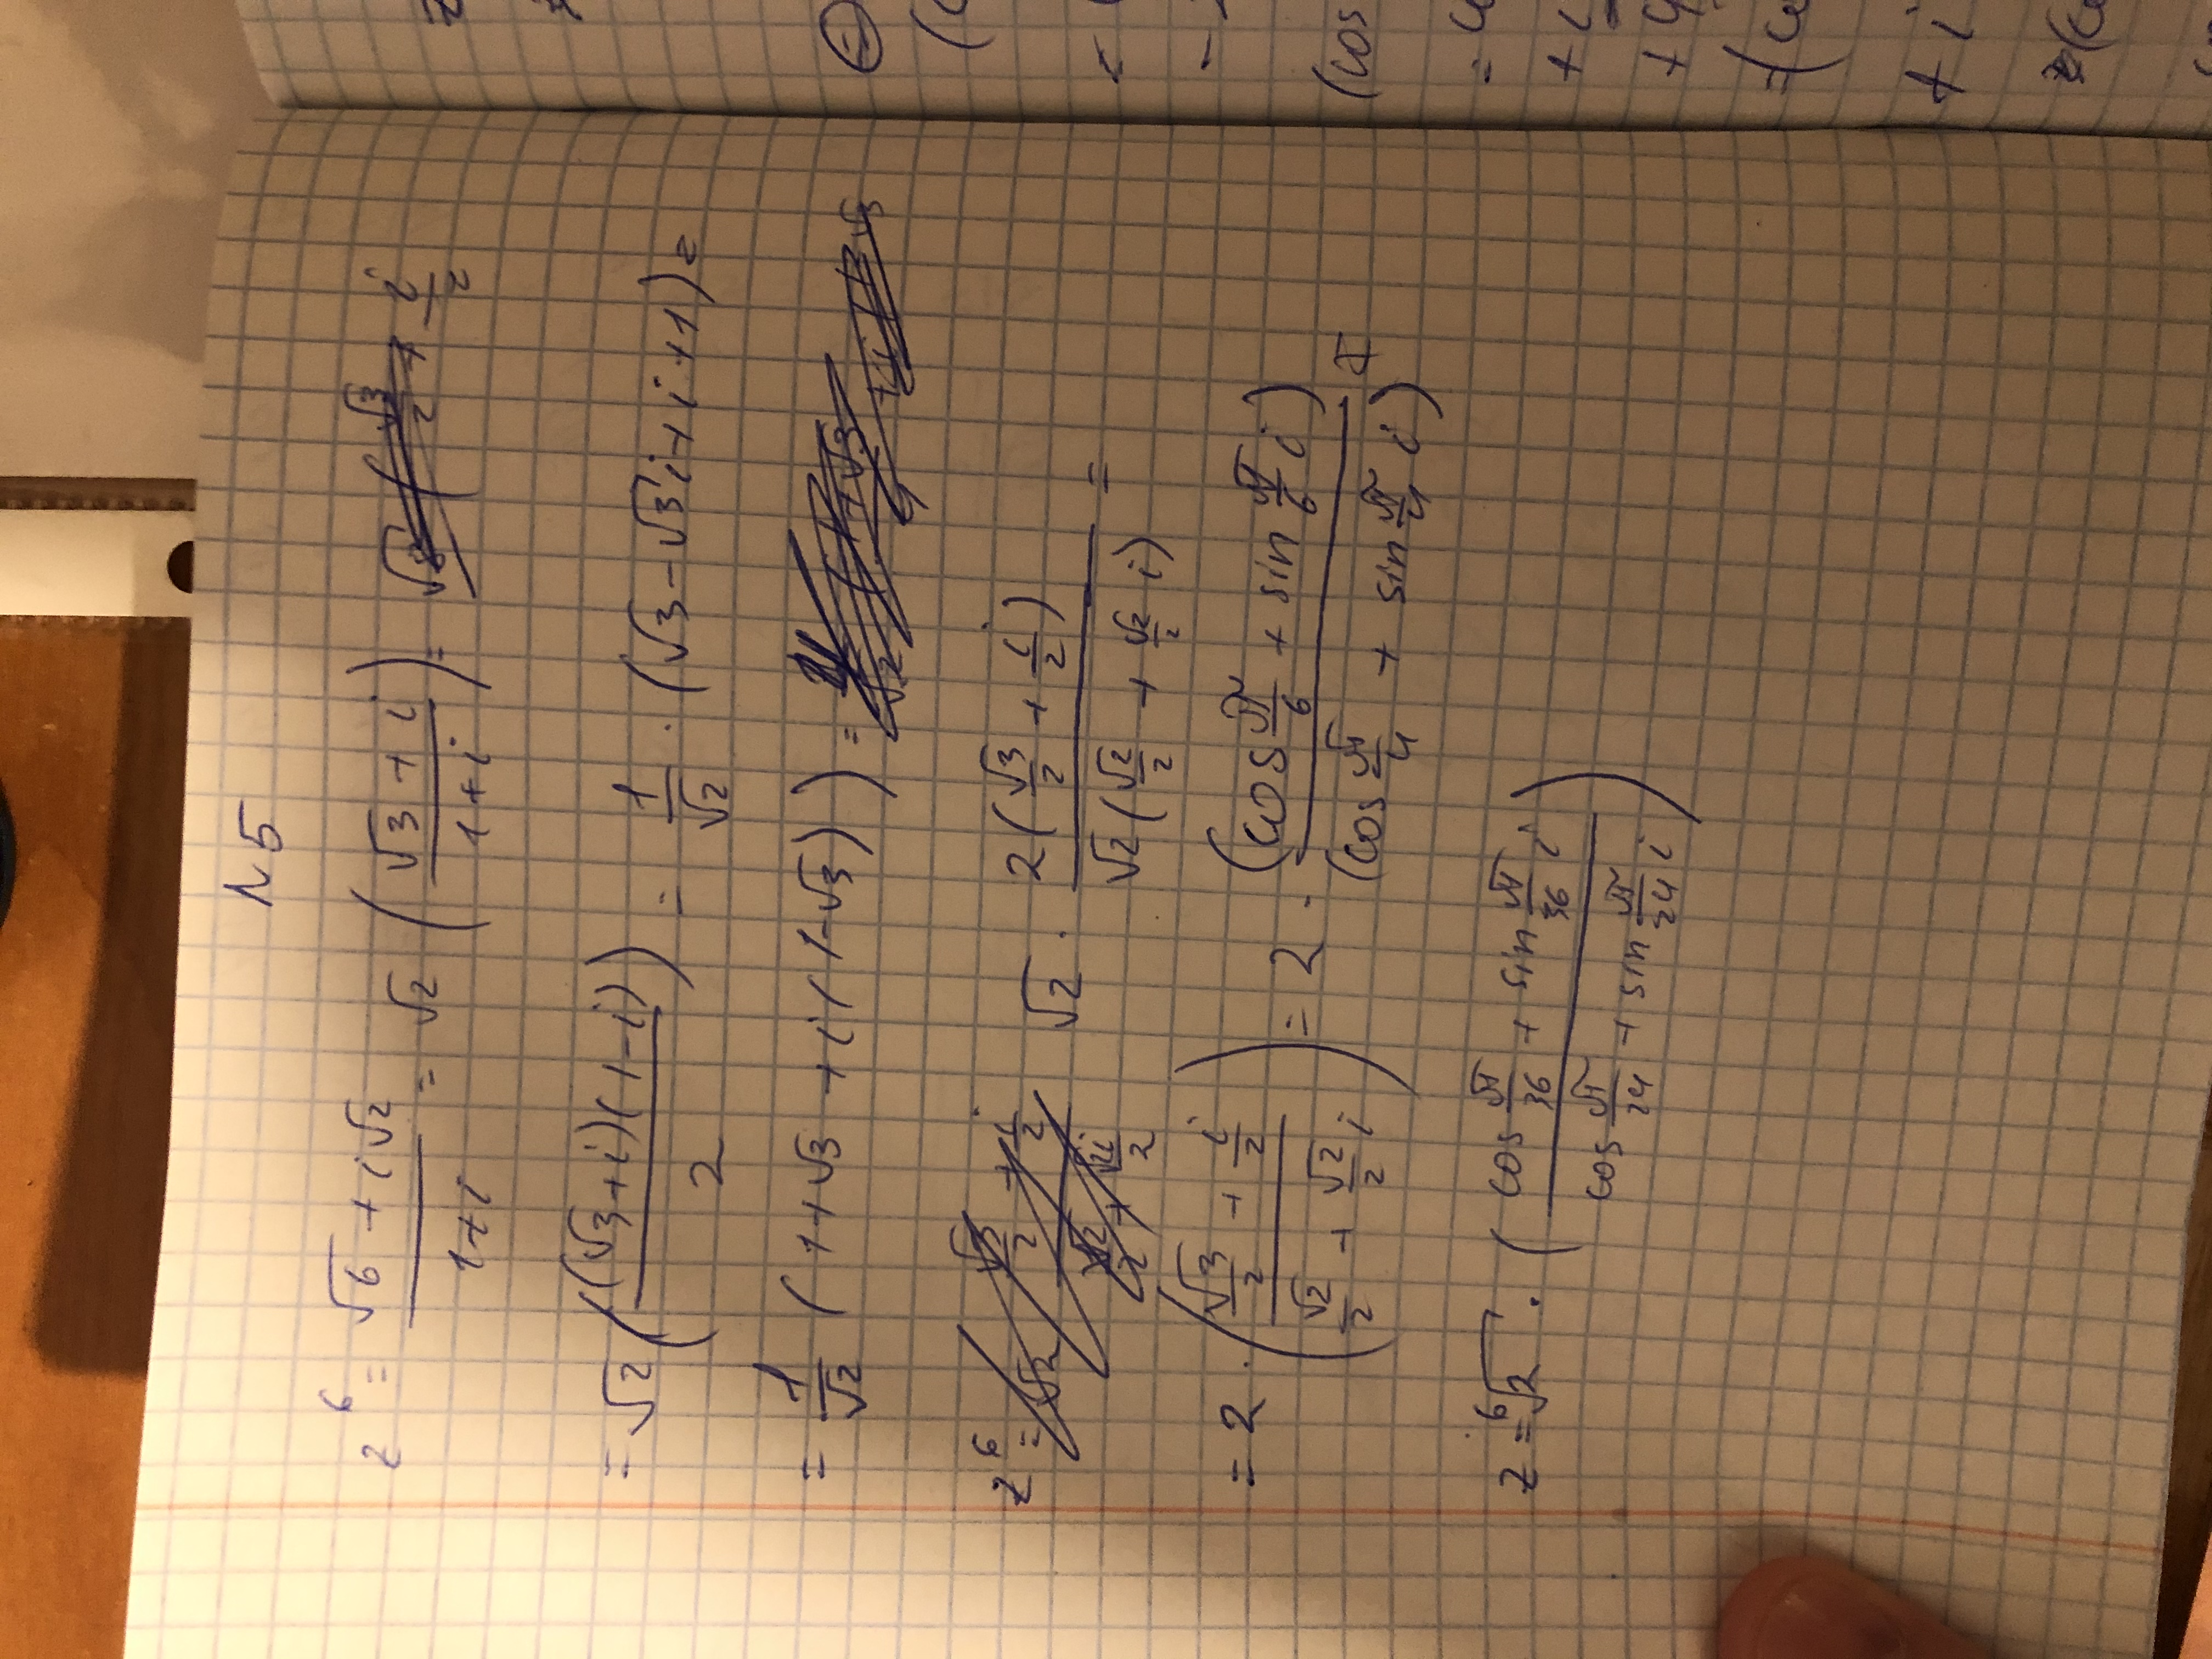 N 5
z⁶ = (√6 + i√2)/(1+i) = √2 ((√3 + i)/(1+i)) = √2 (√3/2 + i/2
= √2 ((√3+i)(1-i)/2) = 1/√2 · (√3 - √3i + i + 1) =
= 1/√2 (1+√3 + i(1-√3)) =
z⁶ = √2 (√3/2 + i/2)/(√2/2 + √2i/2) √2 · 2(√3/2 + i/2)/(√2(√2/2 + √2/2 i)) =
= 2 · ((√3/2 + i/2)/(√2/2 + √2/2 i)) = 2 · (cos π/6 + sin π/6 i)/(cos π/4 + sin π/4 i) =
z = ⁶√2 · ((cos π/36 + sin π/36 i)/(cos π/24 + sin π/24 i))
(cos
+ i